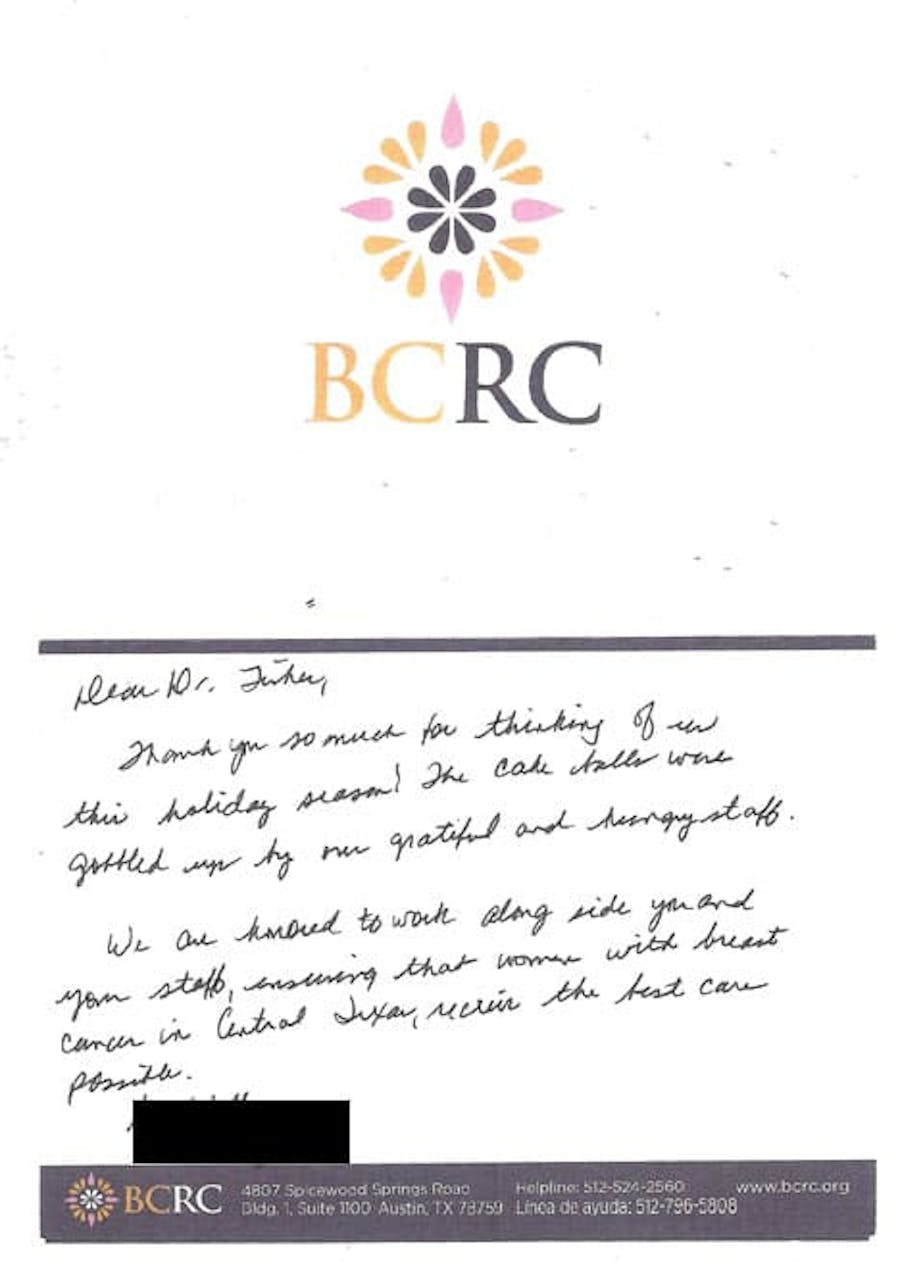 BCRC
Dear Dr. Fisher,
Thank you so much for thinking of us
this holiday season! The cake balls were
gobbled up by our grateful and hungry staff.
We are honored to work along side you and
your staff, ensuring that women with breast
cancer in Central Texas, receive the best care
possible.
BCRC
4807 Spicewood Springs Road
Bldg. 1, Suite 1100 Austin, TX 78759
Helpline: 512-524-2560
Línea de ayuda: 512-796-5808
www.bcrc.org